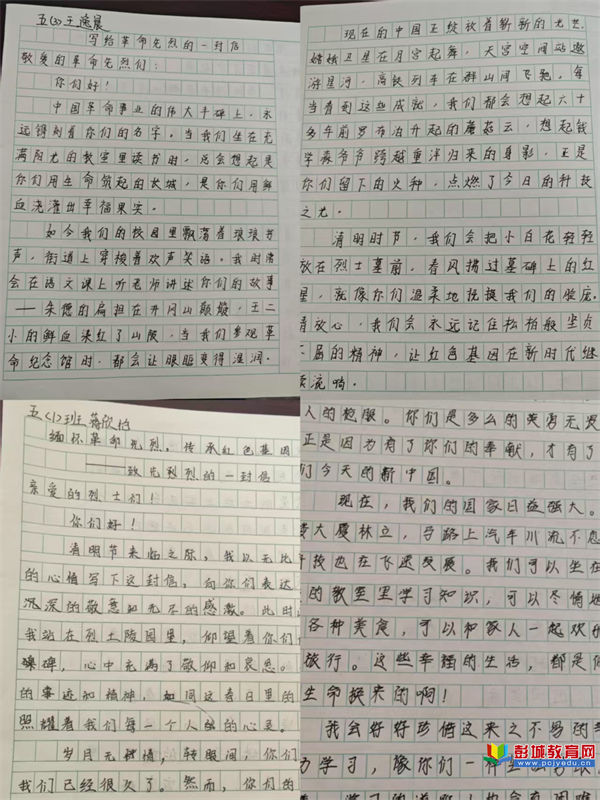 五(3)王
写给革命先烈的一封信
敬爱的革命先烈们：
你们好！
中国革命事业的伟大丰碑上，永
远镌刻着你们的名字。当我们坐在充
满阳光的教室里读书时，总会想起是
你们用生命筑起的长城，是你们用鲜
血浇灌出幸福果实。
如今我们的校园里飘荡着琅琅书
声，街道上穿梭着欢声笑语。我时常
会在语文课上听老师讲述你们的故事
——朱德的扁担在井冈山颠簸，王二
小的鲜血染红了山陂，当我们参观革
命纪念馆时，都会让眼眶变得湿润。
现在的中国正绽放着崭新的光芒。
嫦娥卫星在月宫起舞，天宫空间站遨
游星河，高铁列车在群山间飞驰，每
当看到这些成就，我们都会想起六十
多年前罗布泊升起的蘑菇云，想起钱
学森爷爷跨越重洋归来的身影，正是
你们留下的火种，点燃了今日的科技
之光。
清明时节，我们会把小白花轻轻
放在烈士墓前，春风拂过墓碑上的红
星，就像你们温柔地抚摸我们的脸庞。
请放心，我们会永远记住松柏般坚贞
不屈的精神，让红色基因在新时代继
续流淌。
五(1)班蒋欣怡
缅怀革命先烈，传承红色基因
——致先烈的一封信
亲爱的烈士们！
你们好！
清明节来临之际，我以无比
的心情写下这封信，向你们表达
沉深的敬意和无尽的感激。此时
我站在烈士陵园里，仰望着你们
碑，心中充满了敬仰和哀思。
的事迹和精神，如同这春日里的
照耀着我们每一个人的心灵。
岁月无情，转眼间，你们
我们已经很久了。然而，你们的
人的枪眼。你们是多么的英勇无畏
正是因为有了你们的奉献，才有了
们今天的新中国。
现在，我们的国家日益强大。
大厦林立，马路上汽车川流不息
科技也在飞速发展。我们可以坐在
的教室里学习知识，可以尽情地
各种美食，可以和家人一起欢
旅行。这些幸福的生活，都是你
生命换来的啊！
我会好好珍惜这来之不易的
力学习，像你们一样
彭城教育网
www.pcjyedu.cn